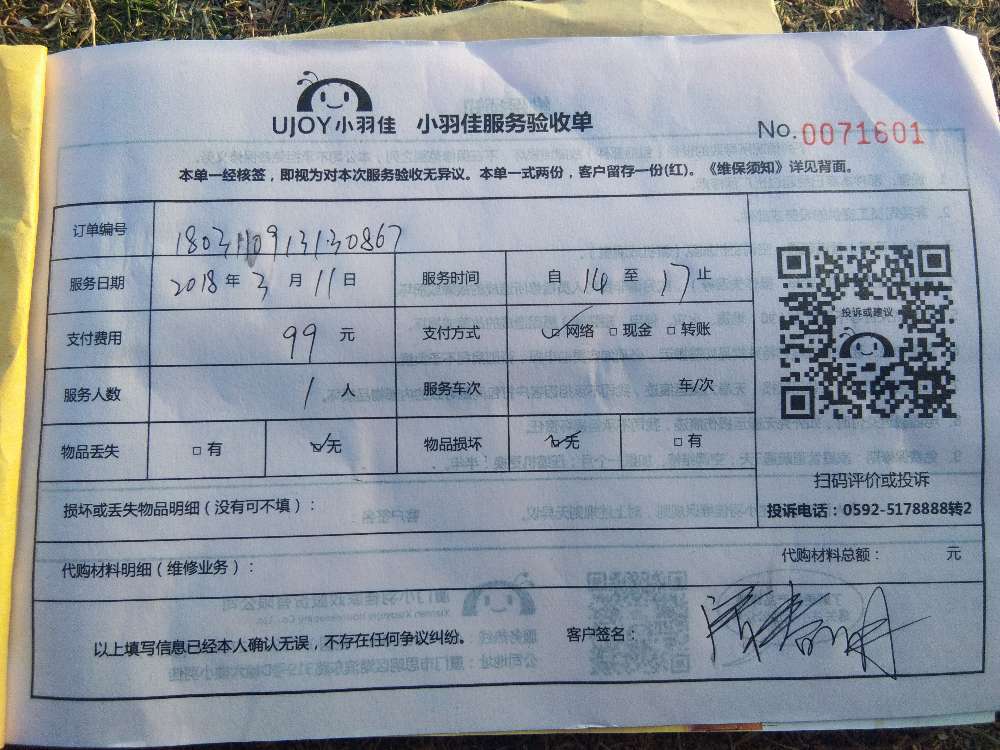 UJOY小羽佳 小羽佳服务验收单
No.0071601
本单一经核签，即视为对本次服务验收无异议。本单一式两份，客户留存一份(红)。《维保须知》详见背面。
订单编号
服务日期 2018年3月11日 服务时间 自14至17止
支付费用 99元 支付方式 网络 现金 转账
服务人数 1人 服务车次 车/次
物品丢失 有 无 物品损坏 无 有
投诉或建议
扫码评价或投诉
投诉电话：0592-5178888转2
损坏或丢失物品明细（没有可不填）：
代购材料明细（维修业务）： 代购材料总额： 元
以上填写信息已经本人确认无误，不存在任何争议纠纷。 客户签名：